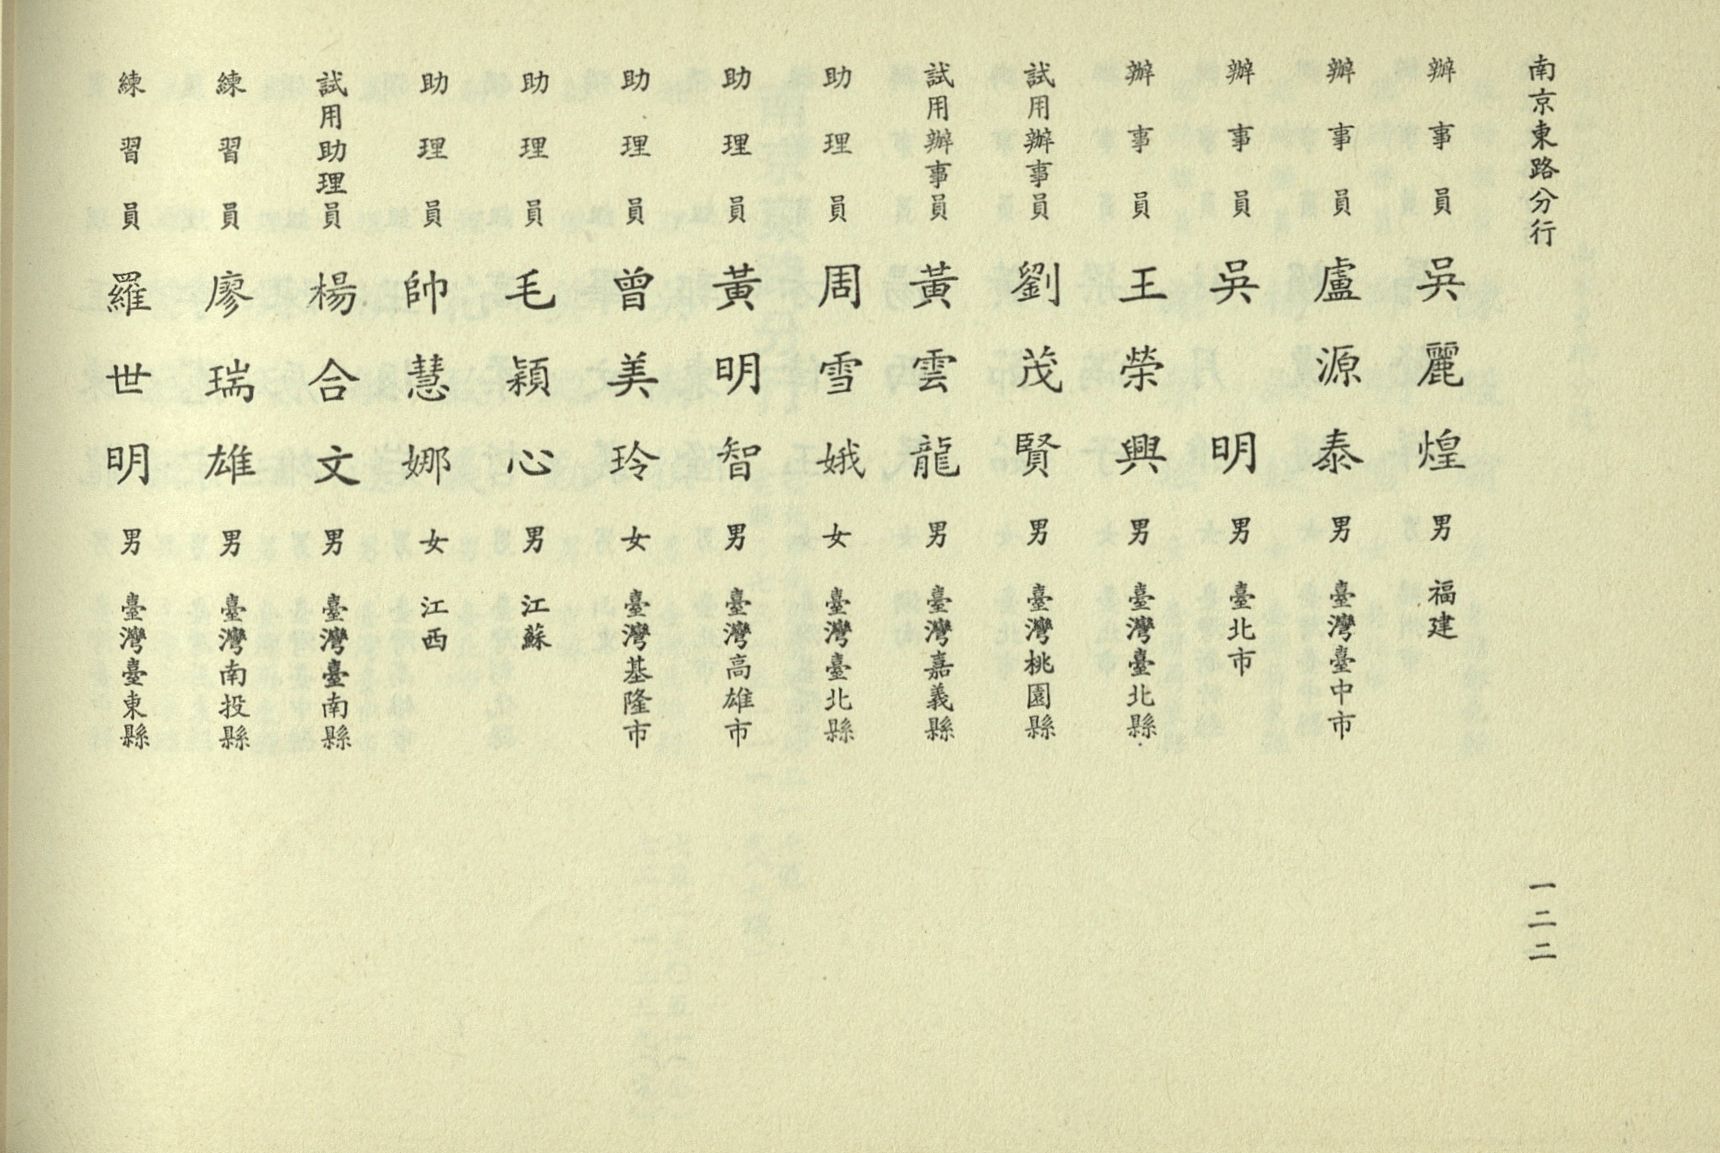 南京東路分行 一二二
辦事員 吳麗煌 男 福建
辦事員 盧源泰 男 臺灣臺中市
辦事員 吳明 男 臺北市
辦事員 王榮興 男 臺灣臺北縣
試用辦事員 劉茂賢 男 臺灣桃園縣
試用辦事員 黃雲龍 男 臺灣嘉義縣
助理員 周雪娥 女 臺灣臺北縣
助理員 黃明智 男 臺灣高雄市
助理員 曾美玲 女 臺灣基隆市
助理員 毛穎心 男 江蘇
助理員 帥慧娜 女 江西
試用助理員 楊合文 男 臺灣臺南縣
練習員 廖瑞雄 男 臺灣南投縣
練習員 羅世明 男 臺灣臺東縣